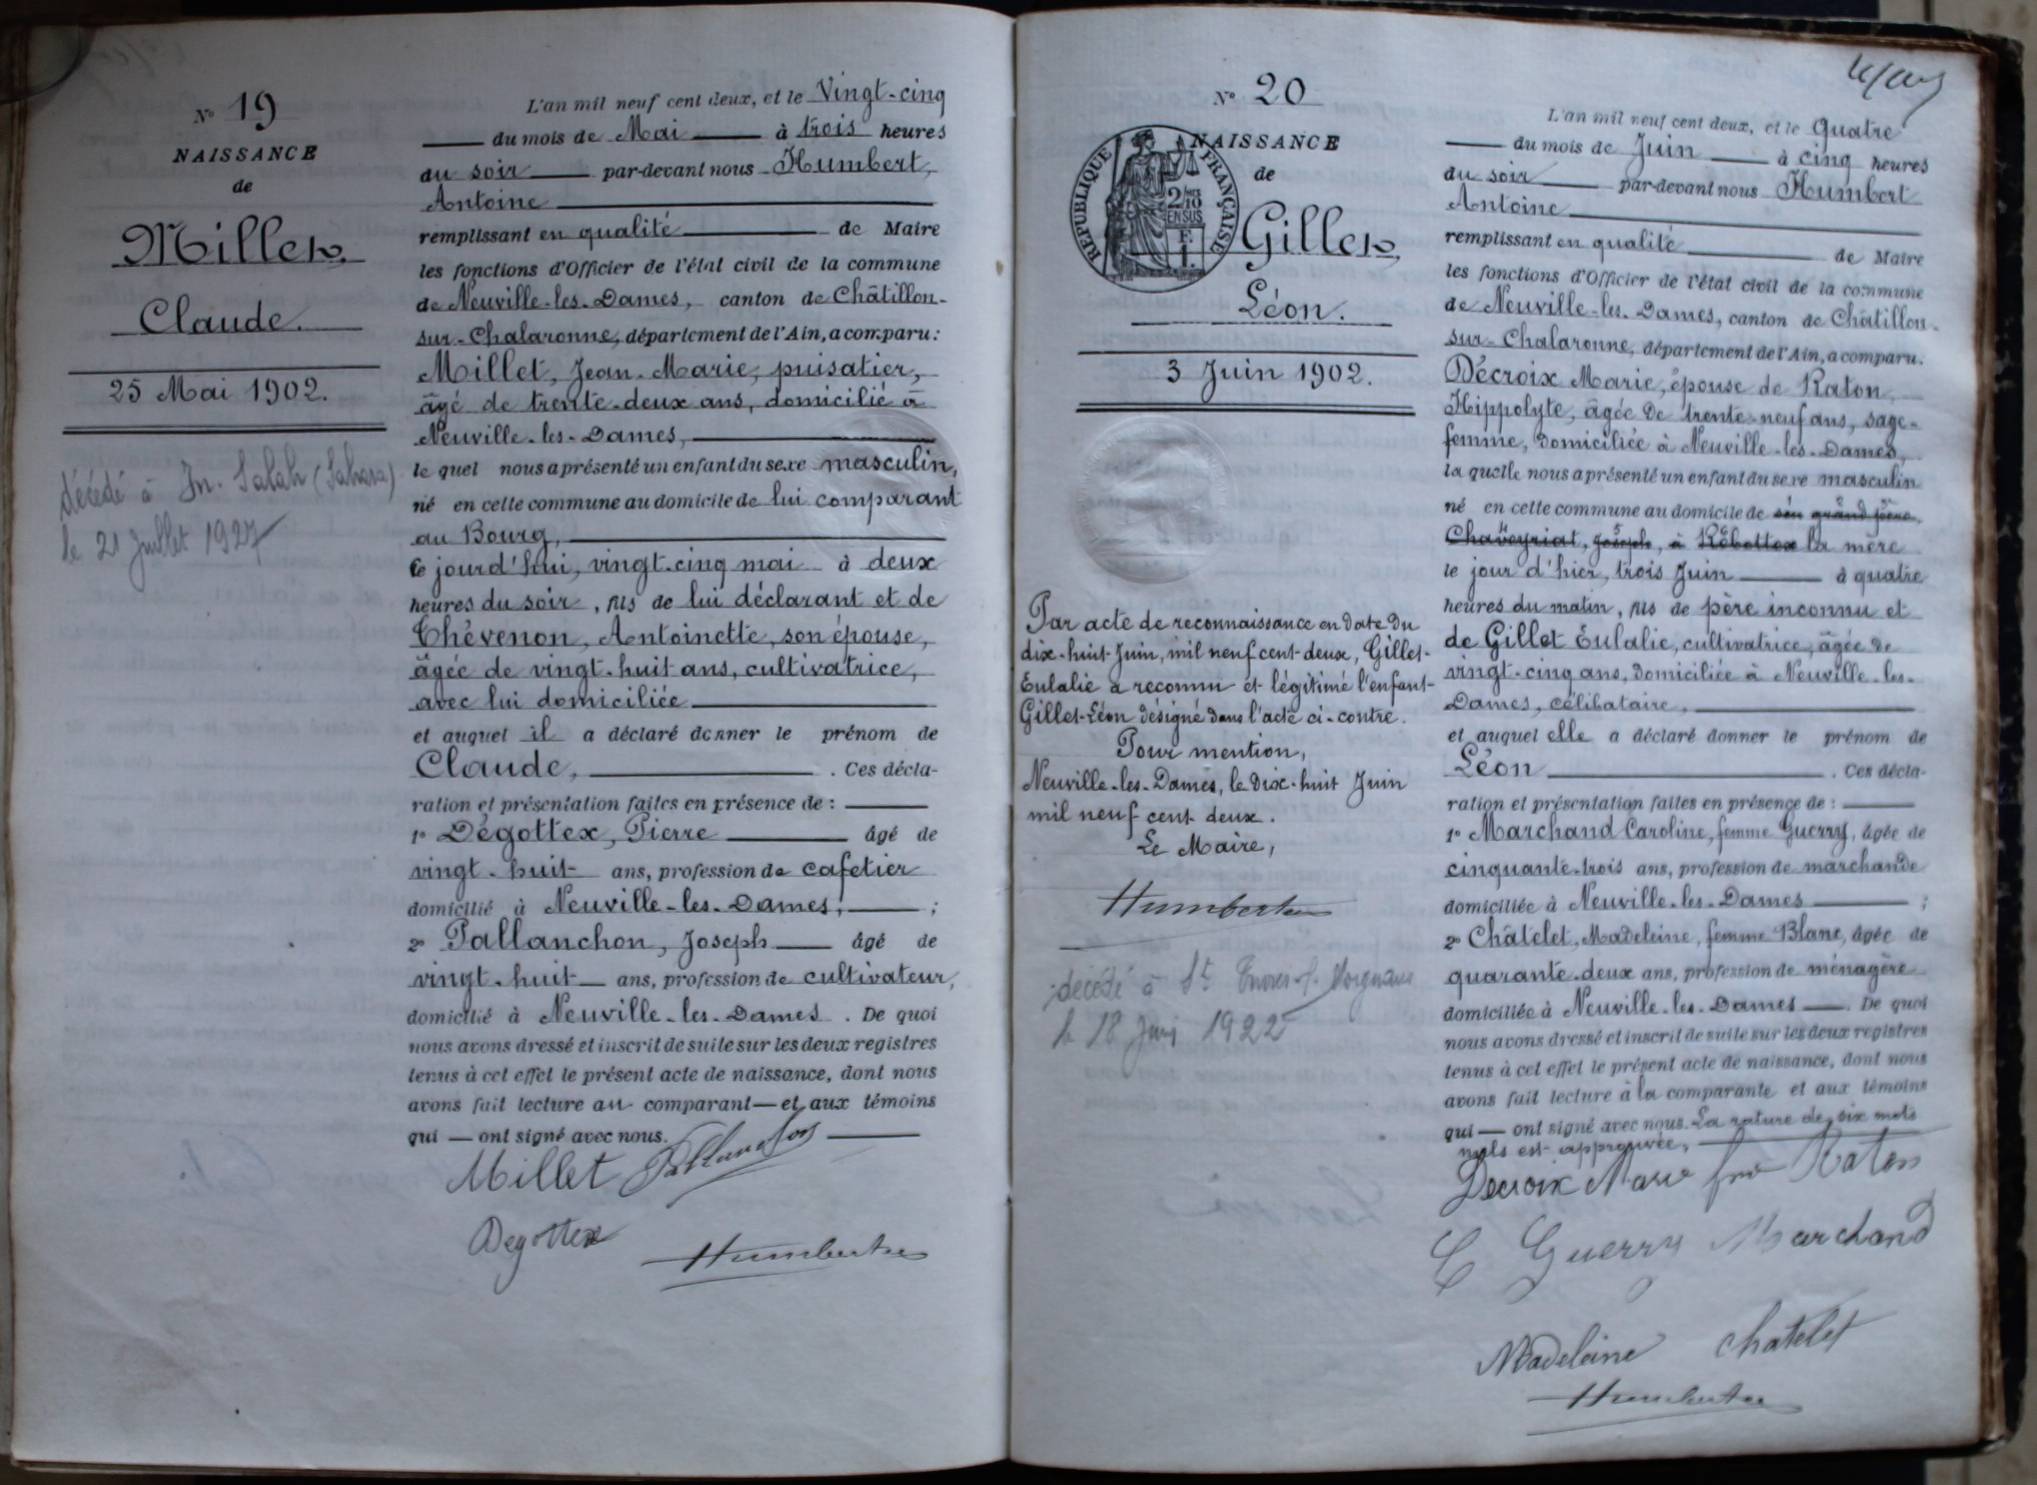 Nº 19
NAISSANCE
de
Millet,
Claude.
25 Mai 1902.
décédé à In-Salah (Sahara)
le 21 Juillet 1927
L'an mil neuf cent deux, et le Vingt-cinq
du mois de Mai à trois heures
du soir par-devant nous Humbert,
Antoine
remplissant en qualité de Maire
les fonctions d'Officier de l'état civil de la commune
de Neuville-les-Dames, canton de Châtillon-
sur-Chalaronne, département de l'Ain, a comparu:
Millet, Jean-Marie, puisatier,
âgé de trente-deux ans, domicilié à
Neuville-les-Dames,
le quel nous a présenté un enfant du sexe masculin,
né en cette commune au domicile de lui comparant
au Bourg,
ce jourd'hui, vingt-cinq mai à deux
heures du soir, fils de lui déclarant et de
Thévenon, Antoinette, son épouse,
âgée de vingt-huit ans, cultivatrice,
avec lui domiciliée
et auquel il a déclaré donner le prénom de
Claude, . Ces décla-
ration et présentation faites en présence de :
1º Dégottex, Pierre âgé de
vingt-huit ans, profession de cafetier
domicilié à Neuville-les-Dames, ;
2º Pallanchon, Joseph âgé de
vingt-huit ans, profession de cultivateur,
domicilié à Neuville-les-Dames. De quoi
nous avons dressé et inscrit de suite sur les deux registres
tenus à cet effet le présent acte de naissance, dont nous
avons fait lecture au comparant et aux témoins
qui ont signé avec nous.
Millet Pallanchon
Degottex Humbert
Nº 20
NAISSANCE
de
RÉPUBLIQUE FRANÇAISE
2/10
EN SUS
Gillet,
Léon.
3 Juin 1902.
Par acte de reconnaissance en date du
dix-huit Juin, mil neuf cent deux, Gillet
Eulalie a reconnu et légitimé l'enfant
Gillet Léon désigné dans l'acte ci-contre.
Pour mention,
Neuville-les-Dames, le dix-huit Juin
mil neuf cent deux.
Le Maire,
Humbert
décédé à St
le 18 1922
L'an mil neuf cent deux, et le Quatre
du mois de Juin à cinq heures
du soir par-devant nous Humbert
Antoine
remplissant en qualité de Maire
les fonctions d'Officier de l'état civil de la commune
de Neuville-les-Dames, canton de Châtillon-
sur-Chalaronne, département de l'Ain, a comparu:
Décroix Marie, épouse de Raton,
Hippolyte, âgée de trente-neuf ans, sage-
femme, domiciliée à Neuville-les-Dames,
la quelle nous a présenté un enfant du sexe masculin
né en cette commune au domicile de son grand père,
Chaveyriat, Joseph, à Rebottex la mère
le jour d'hier, trois Juin à quatre
heures du matin, fils de père inconnu et
de Gillet Eulalie, cultivatrice, âgée de
vingt-cinq ans, domiciliée à Neuville-les-
Dames, célibataire,
et auquel elle a déclaré donner le prénom de
Léon . Ces décla-
ration et présentation faites en présence de :
1º Marchand Caroline, femme Guerry, âgée de
cinquante-trois ans, profession de marchande
domiciliée à Neuville-les-Dames ;
2º Châtelet, Madeleine, femme Blanc, âgée de
quarante-deux ans, profession de ménagère
domiciliée à Neuville-les-Dames. De quoi
nous avons dressé et inscrit de suite sur les deux registres
tenus à cet effet le présent acte de naissance, dont nous
avons fait lecture à la comparante et aux témoins
qui ont signé avec nous. La rature de six mots
nuls est approuvée,
Decroix Marie fme Raton
C Guerry Marchand
Madeleine Chatelet
Humbert